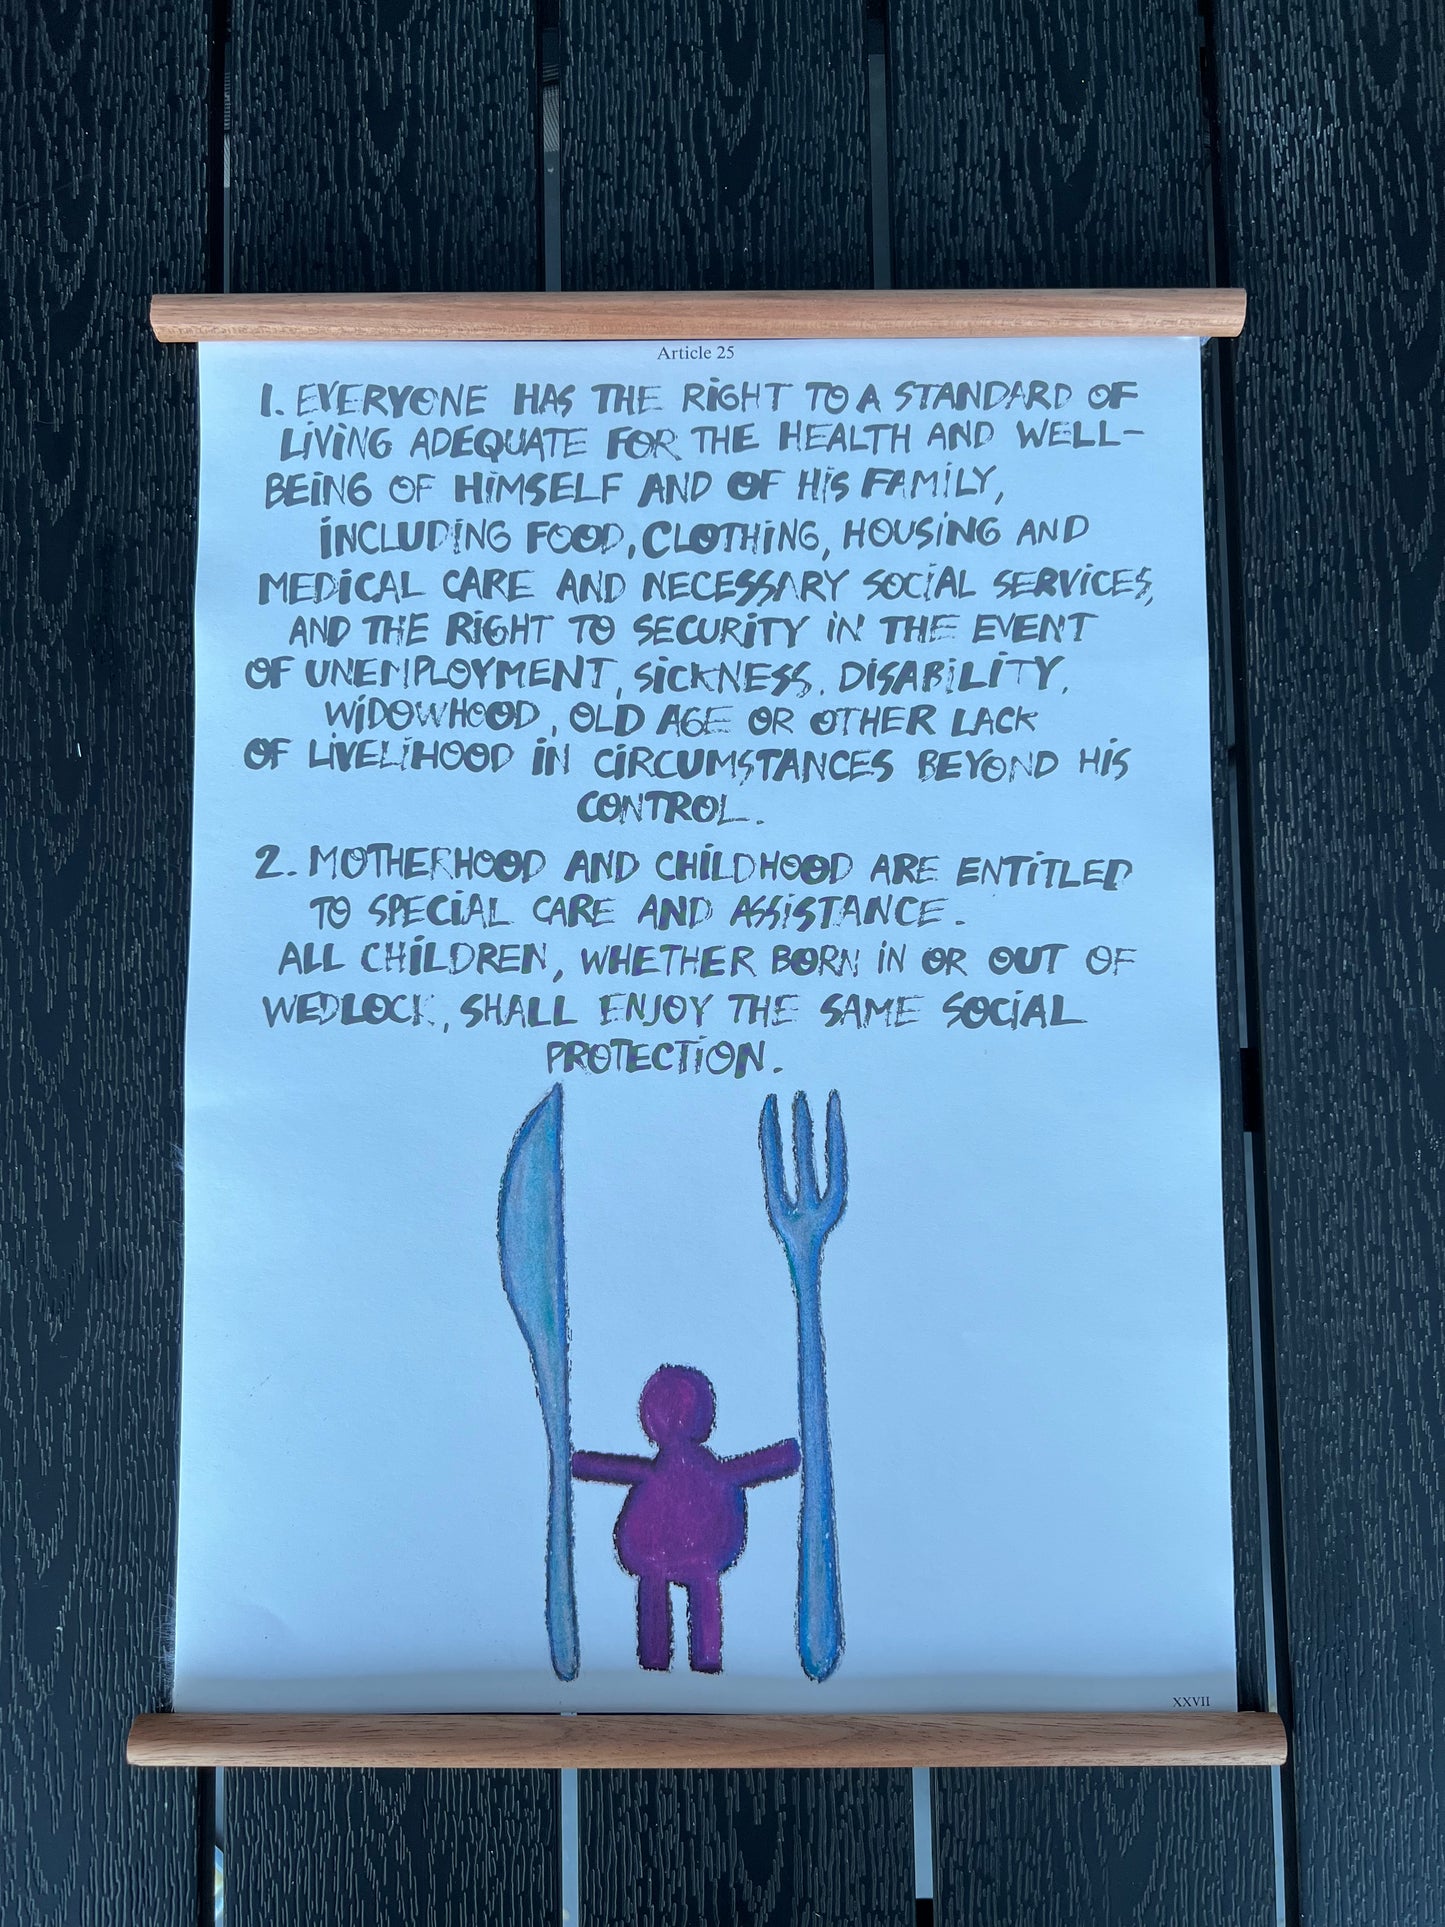 Article 25
1. EVERYONE HAS THE RIGHT TO A STANDARD OF
LIVING ADEQUATE FOR THE HEALTH AND WELL-
BEING OF HIMSELF AND OF HIS FAMILY,
INCLUDING FOOD, CLOTHING, HOUSING AND
MEDICAL CARE AND NECESSARY SOCIAL SERVICES,
AND THE RIGHT TO SECURITY IN THE EVENT
OF UNEMPLOYMENT, SICKNESS, DISABILITY,
WIDOWHOOD, OLD AGE OR OTHER LACK
OF LIVELIHOOD IN CIRCUMSTANCES BEYOND HIS
CONTROL.
2. MOTHERHOOD AND CHILDHOOD ARE ENTITLED
TO SPECIAL CARE AND ASSISTANCE.
ALL CHILDREN, WHETHER BORN IN OR OUT OF
WEDLOCK, SHALL ENJOY THE SAME SOCIAL
PROTECTION.
XXVII